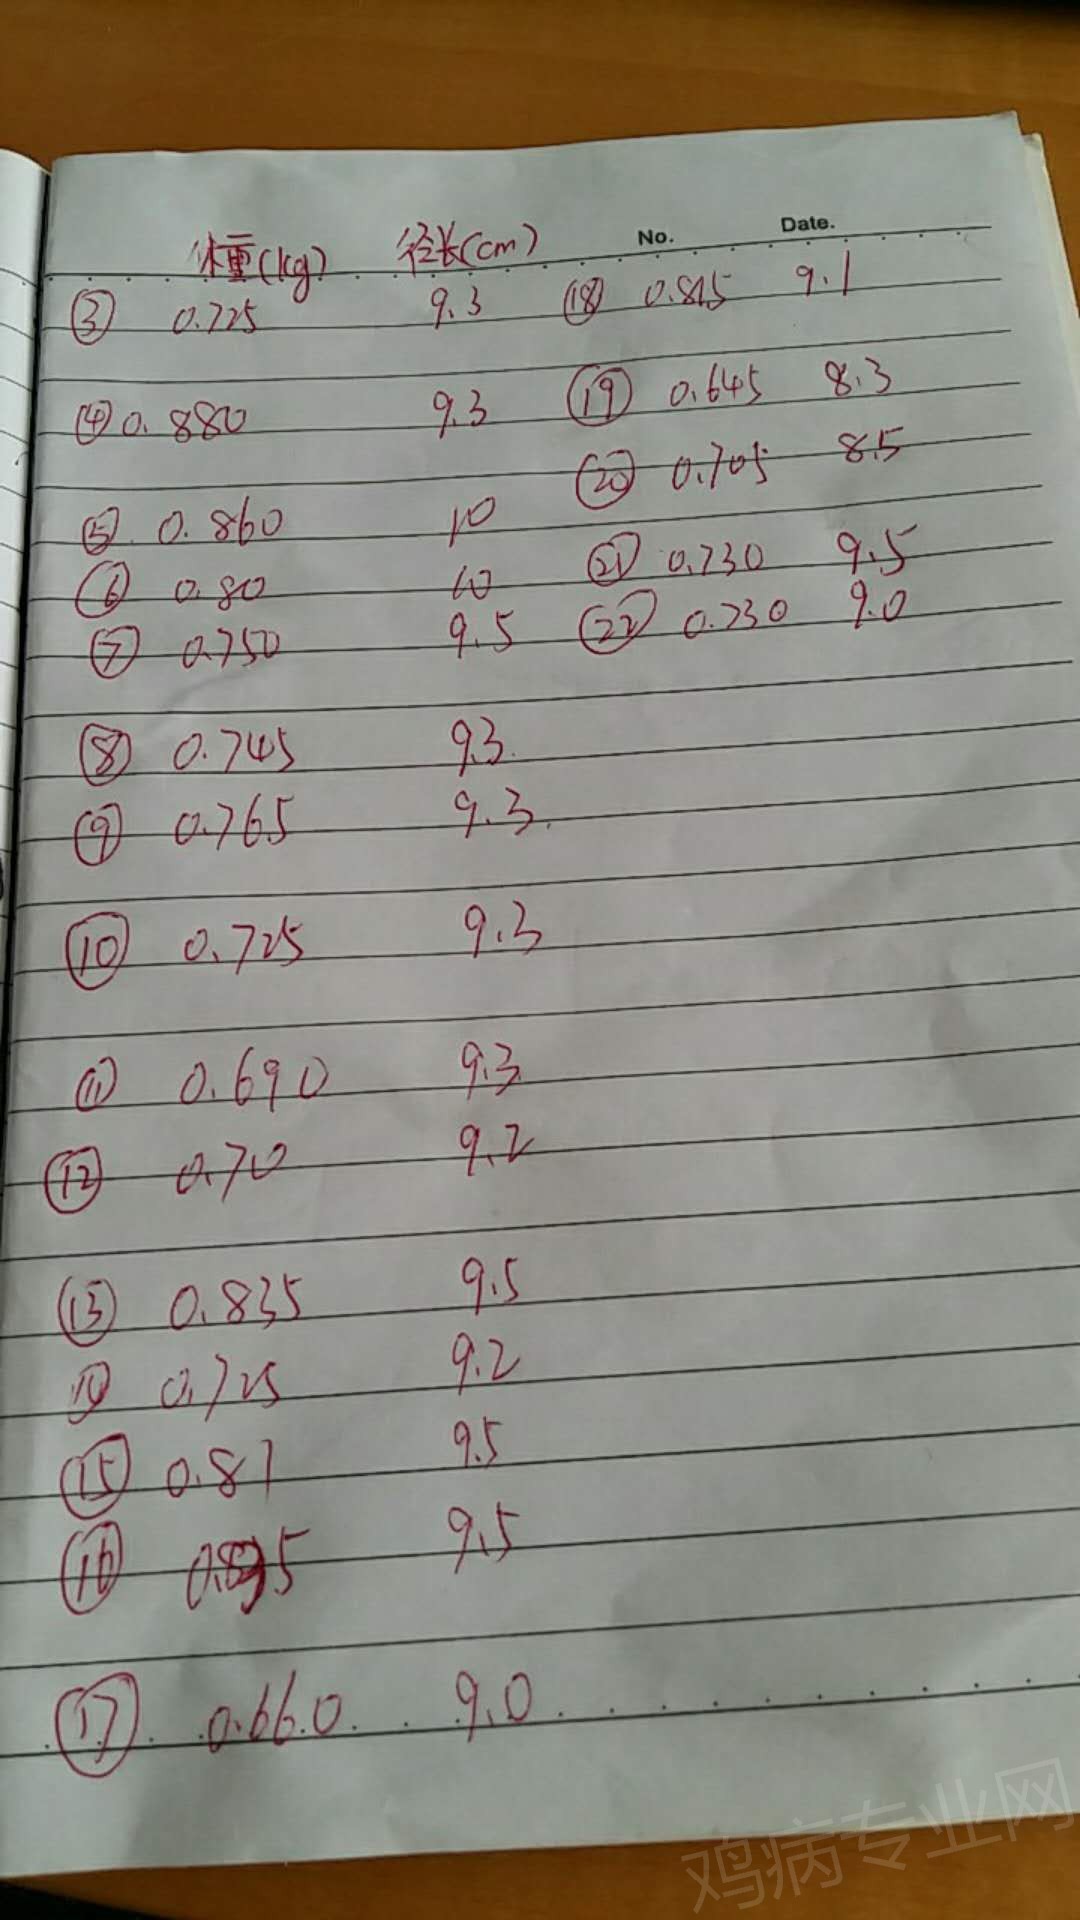 No. Date.
体重(kg) 径长(cm)
③ 0.725 9.3
④ 0.880 9.3
⑤ 0.860 10
⑥ 0.80 10
⑦ 0.750 9.5
⑧ 0.745 9.3
⑨ 0.765 9.3
⑩ 0.725 9.3
⑪ 0.690 9.3
⑫ 0.70 9.2
⑬ 0.835 9.5
⑭ 0.725 9.2
⑮ 0.81 9.5
⑯ 9.5
⑰ 0.660 9.0
⑱ 9.1
⑲ 0.645 8.3
⑳ 0.705 8.5
㉑ 0.730 9.5
㉒ 0.730 9.0
鸡病专业网